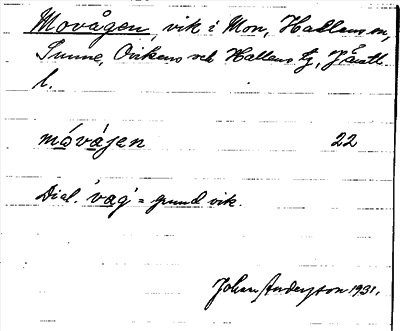 Movågen, vik i Mon, Hallens sn,
Sunne, Ovikens och Hallens tg, Jämtl.
l.
móvàgen 22
Dial. 'vag' = grund vik.
Johan Anderzson 1931.